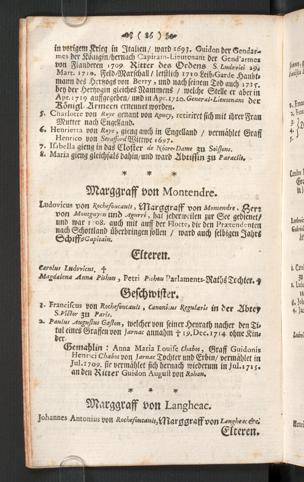 ( 26 )
in vorigem Krieg in Italien/ ward 1693. Guidon der Gendar-
mes der Königin/hernach Capitain-Lieutenant der Gend'armes
von Flanderen 1709. Ritter des Ordens S. Ludovici 29.
Mart. 1710. Feld-Marschall/ letstlich 1710 Leib-Garde Haubt-
mann des Herzogs von Berry/ und nach seinem Tod auch 1715.
bey der Herzogin gleiches Nammens/ welche Stelle er aber in
Apr. 1719 auffgegeben/ und in Apr. 1720. General-Lieutenant der
Königl. Armeen ernennet worden.
5. Charlotte von Roye genant von Roucy, retirirt sich mit ihrer Frau
Mutter nach Engelland.
6. Henrietta von Roye, gieng auch in Engelland / vermählet Graff
Henrico von Strafford Wittwe 1697.
7. Isabella gieng in das Closter de Nôtre-Dame zu Soissons.
8. Maria gieng gleichfals dahin/ und ward Abtissin zu Paraclit.
* * *
Marggraff von Montendre.
Ludovicus von Rochefoucault, Marggraff von Montendre, Herr
von Montguyon und Agurré, hat jederweilen zur See gedienet/
und war 1708. auch mit auf der Flotte, die den Prætendenten
nach Schottland überbringen sollen / ward auch selbigen Jahrs
Schiffs-Capitain.
Elteren.
Carolus Ludovicus, †
Magdalena Anna Pithou, Petri Pithou Parlaments-Raths Tochter. †
Geschwister.
1. Franciscus von Rochefoucault, Canonicus Regularis in der Abtey
S. Victor zu Paris.
2. Paulus Augustus Gaston, welcher von seiner Heyrath nacher den Ti-
tul eines Graffen von Jarnac annahm † 19. Dec. 1714. ohne Kin-
der.
Gemahlin: Anna Maria Louise Chabot, Graff Guidonis
Henrici Chabot von Jarnac Tochter und Erbin/ vermählet in
Jul. 1709. sie vermählet sich hernach wiederum in Jul. 1715.
an den Ritter Guidon August von Rohan.
* * *
Marggraff von Langheac.
Johannes Antonius von Rochefoucault, Marggraff von Langheac &c.
Elteren.